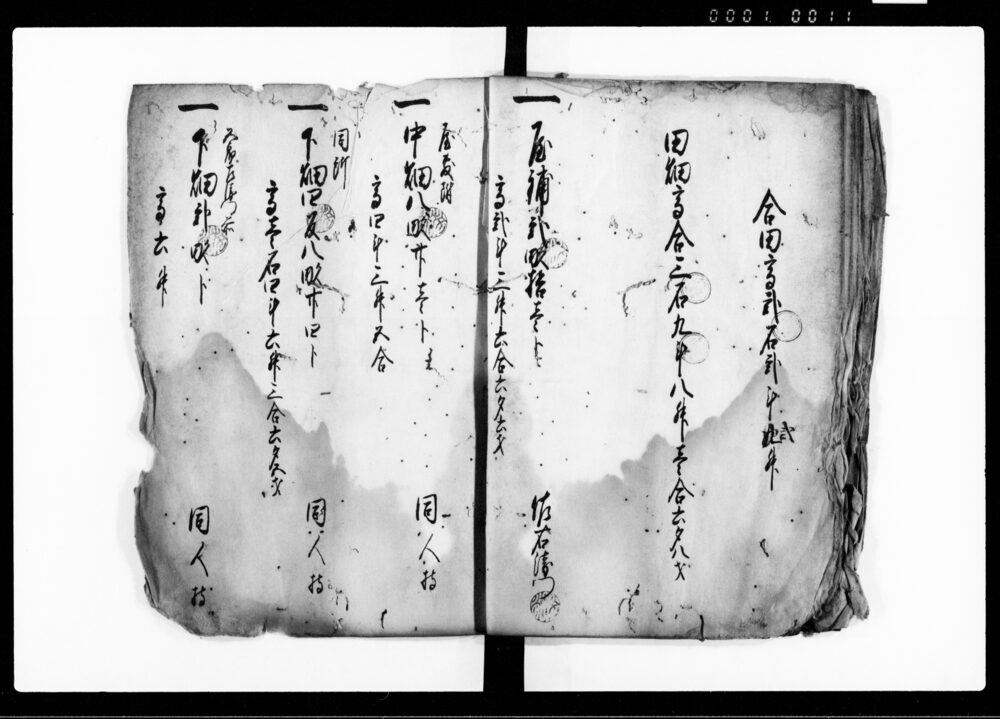 0001 0011
合田高弐石弐斗弐升
田畑高合三石九斗八升壱合六夕八才
一 屋鋪弐畝拾壱卜
高弐斗三升六合六夕六才
佐右衛門
屋敷附
一 中畑八畝廿壱卜
高四斗三升五合
同人持
同所
一 下畑四反八畝廿四卜
高壱石四斗六升三合六夕
同人持
一 下畑弐畝卜
高六升
同人持